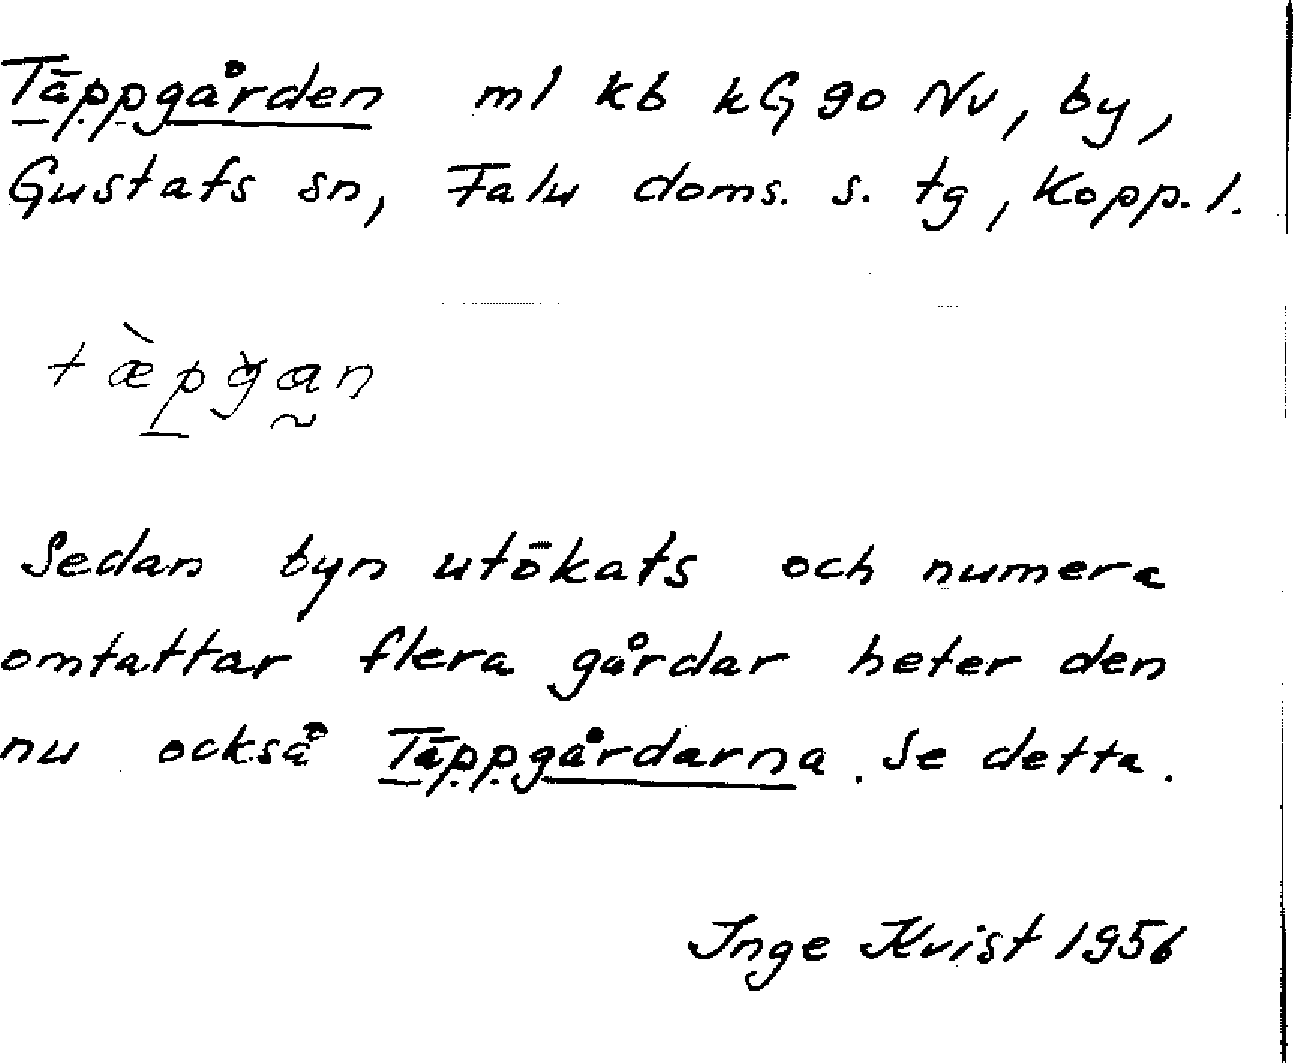 Täppgården ml kb kG go Nv, by,
Gustafs sn, Falu doms. s. tg, Kopp. l.
tæ̀pg̀a̰n
Sedan byn utökats och numera
omfattar flera gårdar heter den
nu också Täppgårdarna. Se detta.
Inge Kvist 1956